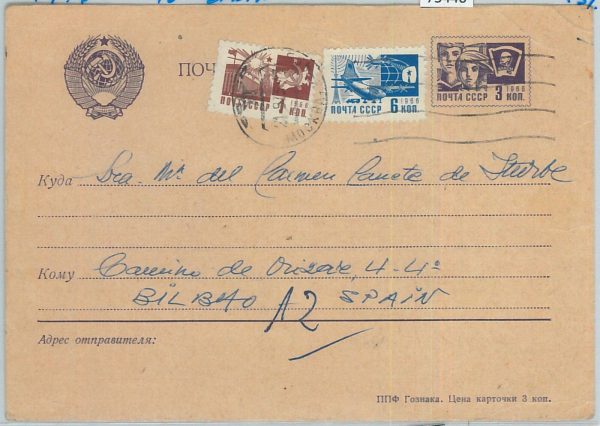 ПОЧ
1 1966
КОП.
ПОЧТА СССР
1966
ПОЧТА СССР 6 КОП.
1966
ПОЧТА СССР 3 КОП.
МОСКВА
Куда Sra. Mª. del Carmen de
Кому Camino de 4-4º
BILBAO A2 SPAIN
Адрес отправителя:
ППФ Гознака. Цена карточки 3 коп.